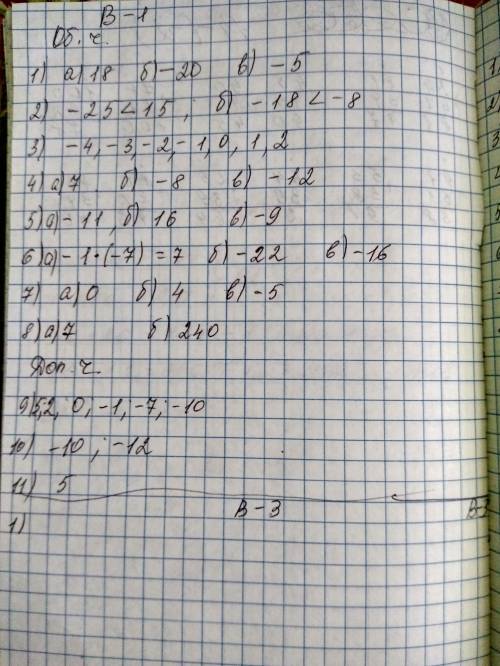 В-1
Об. ч.
1) а) 18 б) -20 в) -5
2) -25 < 15; б) -18 < -8
3) -4, -3, -2, -1, 0, 1, 2
4) а) 7 б) -8 в) -12
5) а) -11, б) 16 в) -9
6) а) -1·(-7) = 7 б) -22 в) -16
7) а) 0 б) 4 в) -5
8) а) 7 б) 240
Доп. ч.
9) 5,2; 0; -1; -7; -10
10) -10; -12
11) 5
В-3
1)